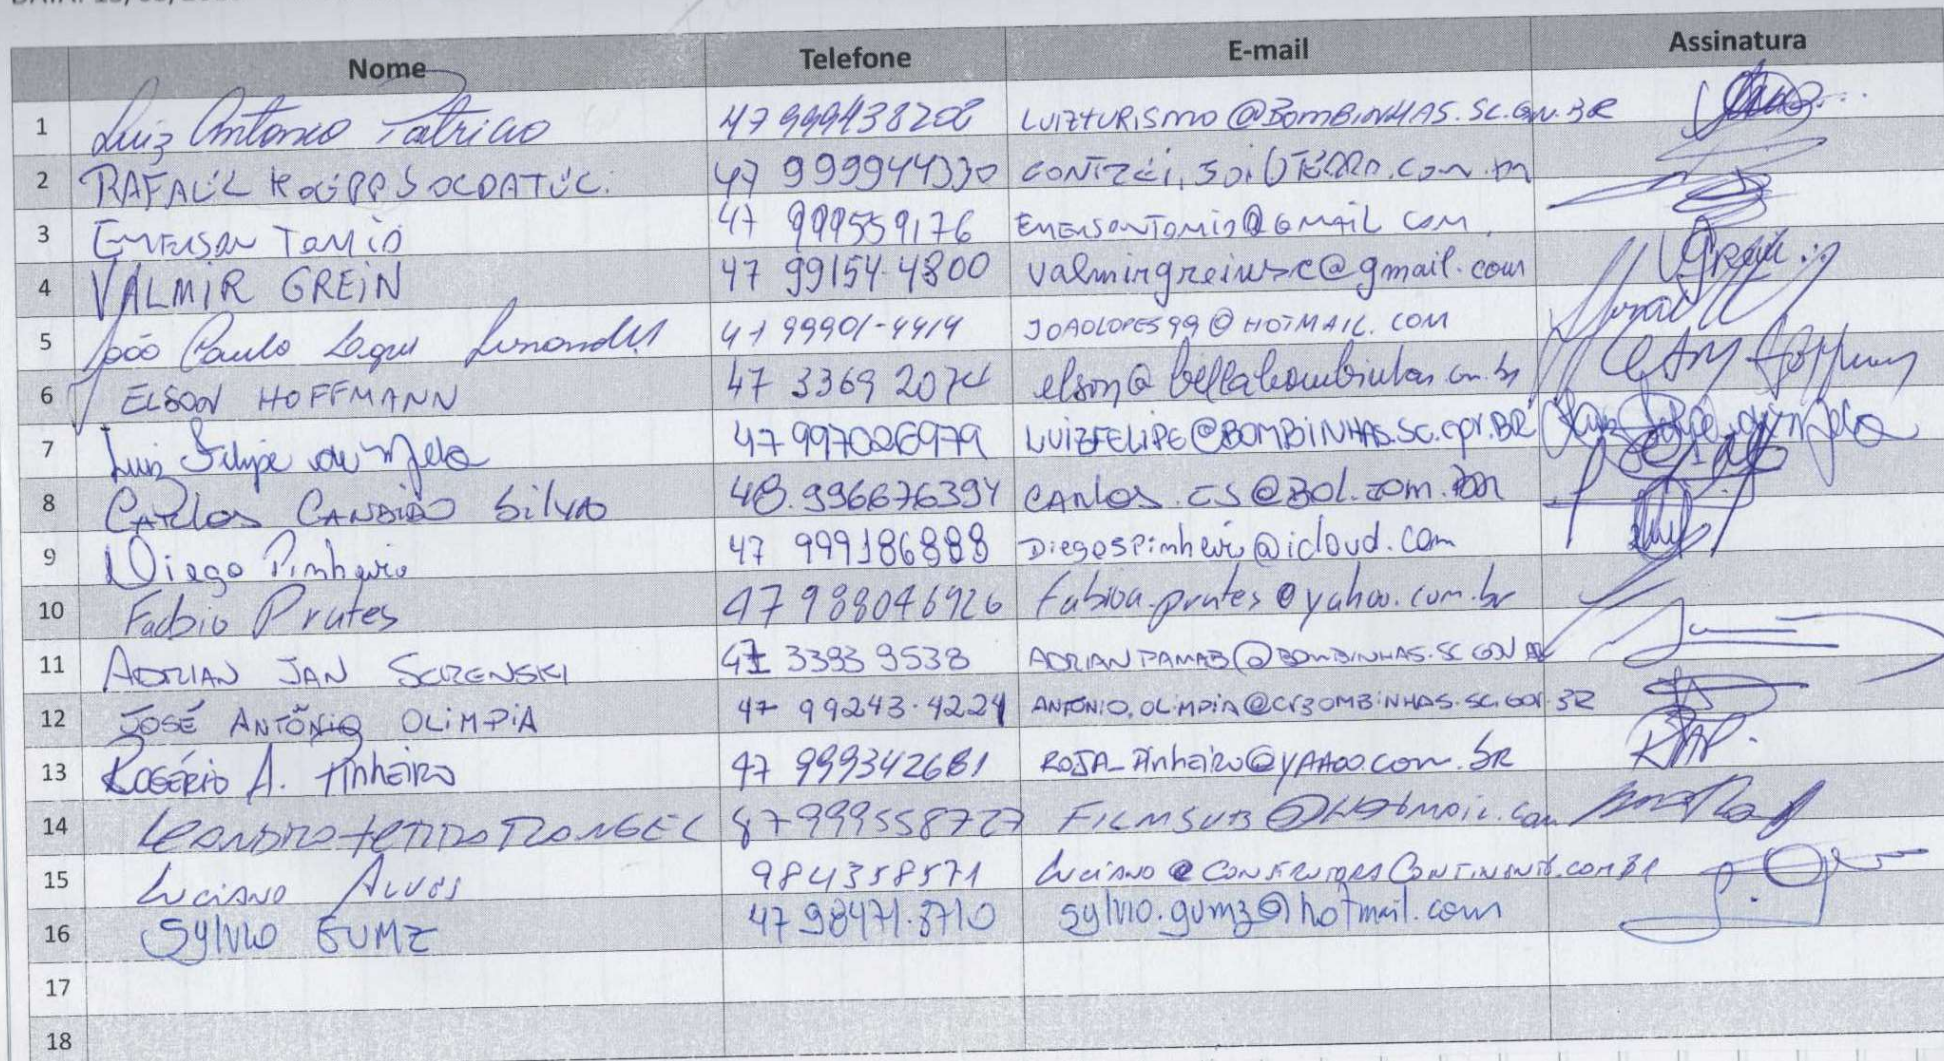 Nome Telefone E-mail Assinatura
1 Luiz Antonio Patricio 47 999438208 LUIZTURISMO@BOMBINHAS.SC.GOV.BR
2 47 999944330
3 EMERSON TOMIO 47 999559176 EMERSONTOMIO@GMAIL COM
4 VALMIR GREIN 47 99154-4800 valmirgreinsc@gmail.com Grein
5 João Paulo 99901-4414 JOAOLOPES99@HOTMAIL.COM
6 ELSON HOFFMANN 47 3369 2074
7 Luiz Felipe de Melo 47 997026979 LUIZFELIPE@BOMBINHAS.SC.GOV.BR Luiz Felipe de Melo
8 CARLOS CANDIDO Silva 48.996676394 CARLOS.CS@BOL.COM.BR
9 Diego Pinheiro 47 999186888 DiegoSPinheiro@icloud.com
10 Fabio Prates 47 988046926 fabioa.prates@yahoo.com.br
11 ADRIAN JAN 47 3393 9538 @BOMBINHAS.SC GOV
12 JOSÉ ANTÔNIO OLIMPIA 47 99243-4224
13 ROGÉRIO A. PINHEIRO 47 999342681 @YAHOO.COM.BR
14 999558727 FILMSUB@HOTMAIL.COM
15 LUCIANO ALVES 984358571 LUCIANO@CONSTRUTORACONTINENTE.COM BR
16 SYLVIO GUMZ 47 98471-8710 sylvio.gumz@hotmail.com
17
18